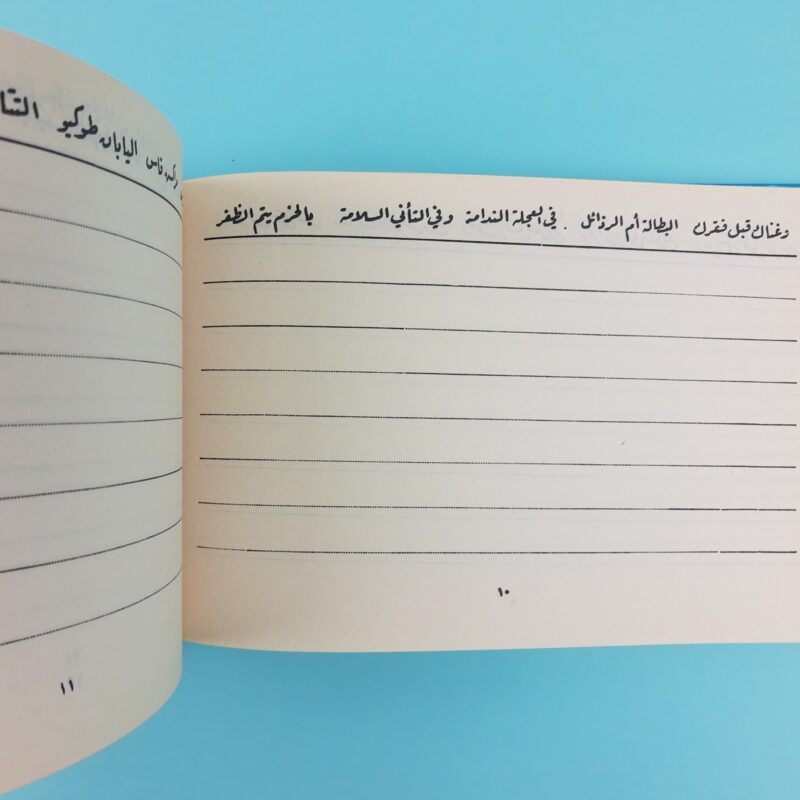 وغناك قبل فقرك البطالة أم الرذائل . في العجلة الندامة وفي التأني السلامة بالحزم يتم الظفر
١٠
فاس اليابان طوكيو
١١